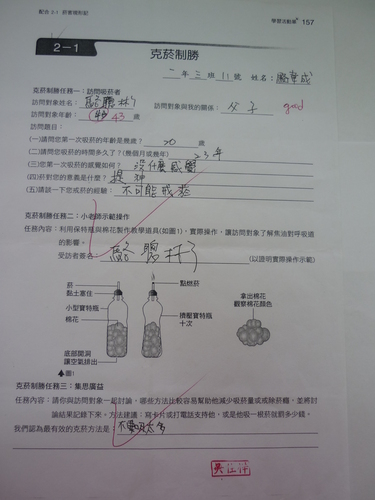 配合 2-1 菸害現形記
學習活動簿 157
2-1
克菸制勝
一年三班11號 姓名:
克菸制勝任務一:訪問吸菸者
訪問對象姓名: 訪問對象與我的關係:父子 good
訪問對象年齡: 43 歲
訪問題目:
(一)請問您第一次吸菸的年齡是幾歲? 20 歲
(二)請問您吸菸的時間多久了?(幾個月或幾年) 23年
(三)您第一次吸菸的感覺如何? 沒什麼感覺
(四)菸對您的意義是什麼? 提神
(五)請說一下您戒菸的經驗: 不可能戒菸
克菸制勝任務二:小老師示範操作
任務內容:利用保特瓶與棉花製作教學道具(如圖1),實際操作,讓訪問對象了解焦油對呼吸道
的影響。
受訪者簽名: (以證明實際操作示範)
菸
黏土塞住
小型寶特瓶
棉花
底部開洞
讓空氣排出
點燃菸
擠壓寶特瓶
十次
拿出棉花
觀察棉花顏色
▲圖1
克菸制勝任務三:集思廣益
任務內容:請你與訪問對象一起討論,哪些方法比較容易幫助他減少吸菸量或戒除菸癮,並將討
論結果記錄下來。方法建議:寫卡片或打電話支持他,或是他吸一根菸就罰多少錢。
我們認為最有效的克菸方法是: 不要吸太多